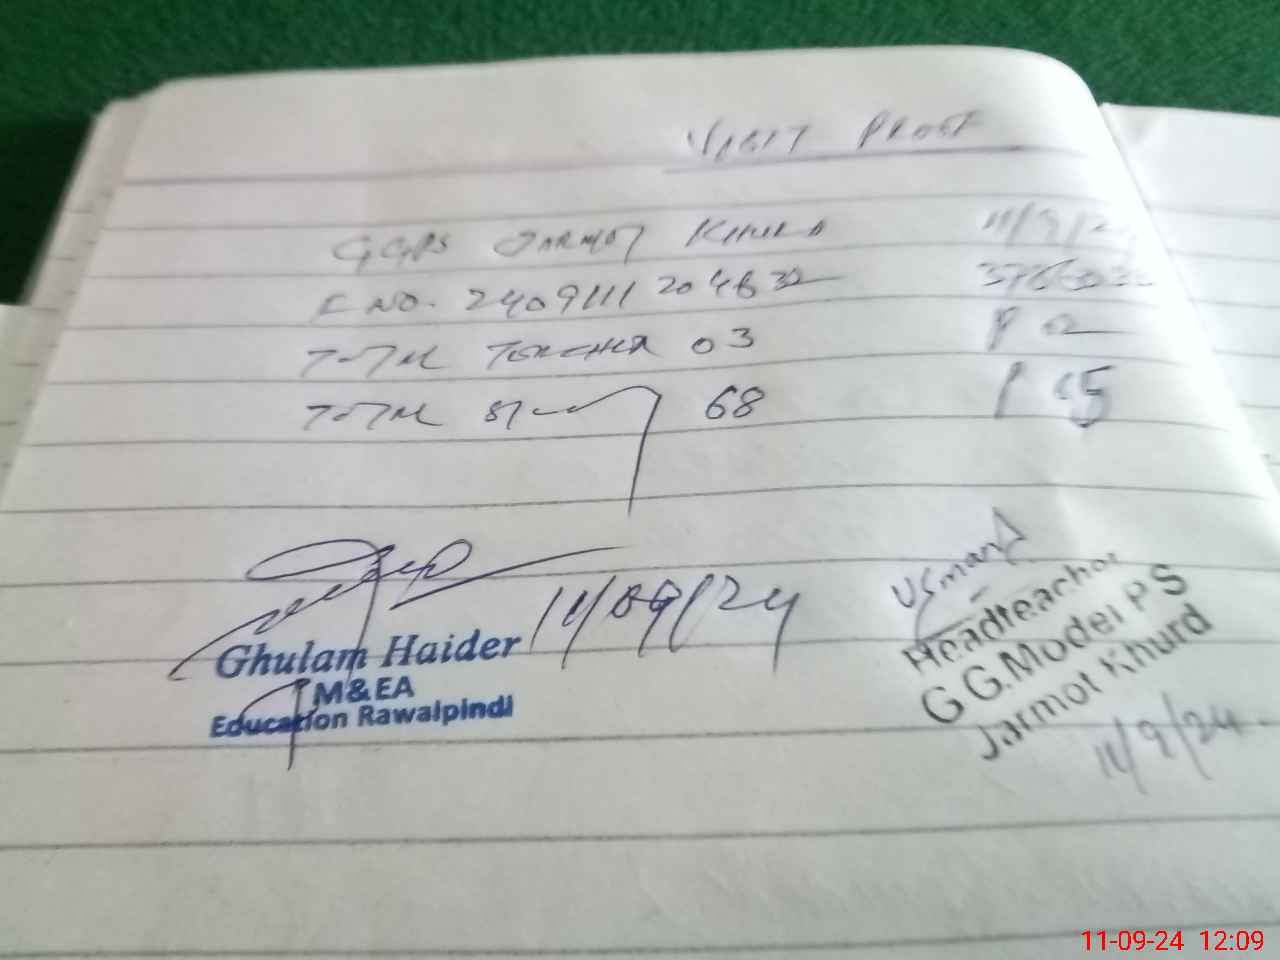 VISIT PROOF
GGPS JARMOT KHURD 11/9/24
F NO. 2409111204632
TOTAL TEACHER 03 P 02
TOTAL ST 68 P 65
11/09/24
Ghulam Haider
M&EA
Education Rawalpindi
Usman
Headteacher
G G.Model P S
Jarmot Khurd
11/9/24
11-09-24 12:09